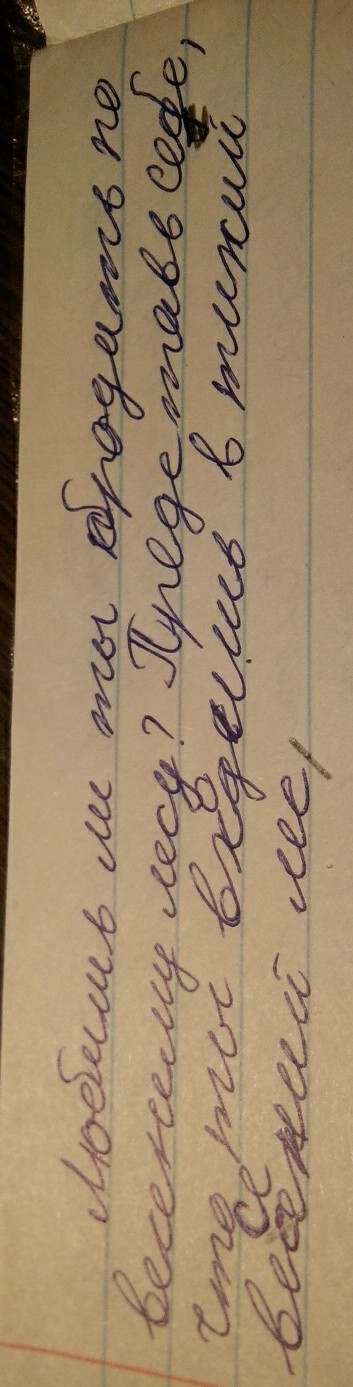 Любишь ли ты бродить по
весенему лесу? Представь себе,
что ты входишь в тихий
весений лес,